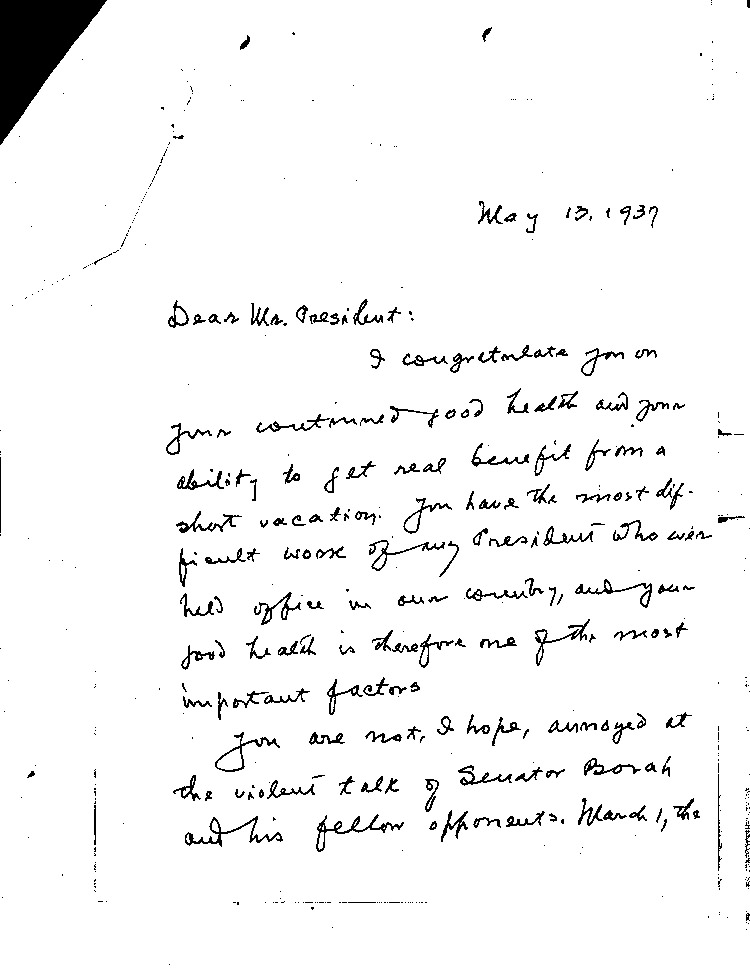 May 13, 1937
Dear Mr. President:
I congratulate you on
your continued good health and your
ability to get real benefit from a
short vacation. You have the most dif-
ficult work of any President who ever
held office in our country, and your
good health is therefore one of the most
important factors
You are not, I hope, annoyed at
the violent talk of Senator Borah
and his fellow opponents. March 1, the